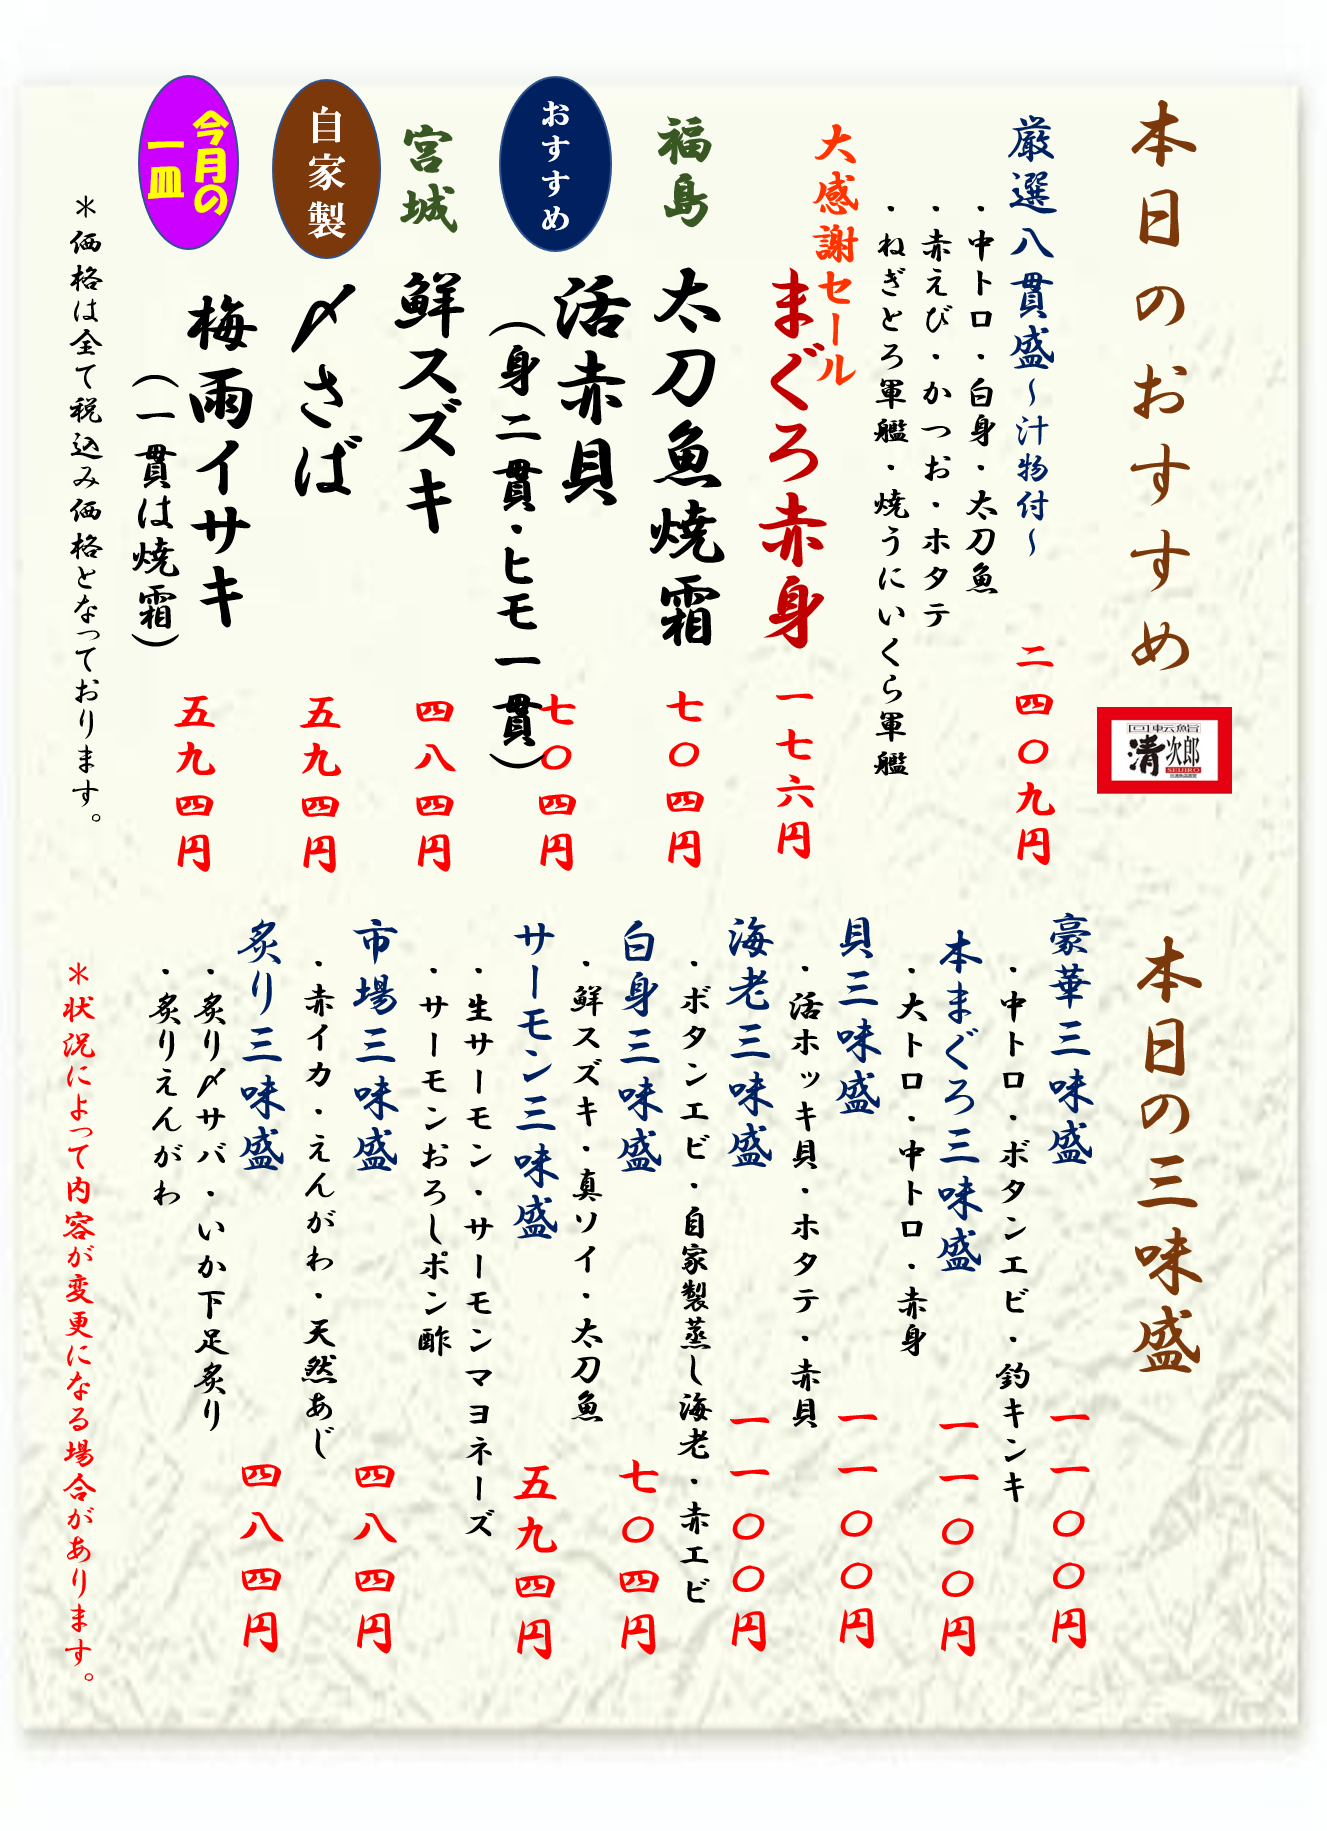 本日のおすすめ
清次郎
SEIJIRO
厳選八貫盛~汁物付~
二四〇九円
・中トロ・白身・太刀魚
・赤えび・かつお・ホタテ
・ねぎとろ軍艦・焼うにいくら軍艦
大感謝セール
まぐろ赤身
一七六円
福島
太刀魚焼霜
七〇四円
おすすめ
活赤貝
(身二貫・ヒモ一貫)
七〇四円
宮城
鮮スズキ
四八四円
自家製
〆さば
五九四円
今月の
一皿
梅雨イサキ
(一貫は焼霜)
五九四円
*価格は全て税込み価格となっております。
本日の三味盛
豪華三味盛
一一〇〇円
・中トロ・ボタンエビ・釣キンキ
本まぐろ三味盛
一一〇〇円
・大トロ・中トロ・赤身
貝三味盛
一一〇〇円
・活ホッキ貝・ホタテ・赤貝
海老三味盛
一一〇〇円
・ボタンエビ・自家製蒸し海老・赤エビ
白身三味盛
七〇四円
・鮮スズキ・真ソイ・太刀魚
サーモン三味盛
五九四円
・生サーモン・サーモンマヨネーズ
・サーモンおろしポン酢
市場三味盛
四八四円
・赤イカ・えんがわ・天然あじ
炙り三味盛
四八四円
・炙り〆サバ・いか下足炙り
・炙りえんがわ
*状況によって内容が変更になる場合があります。